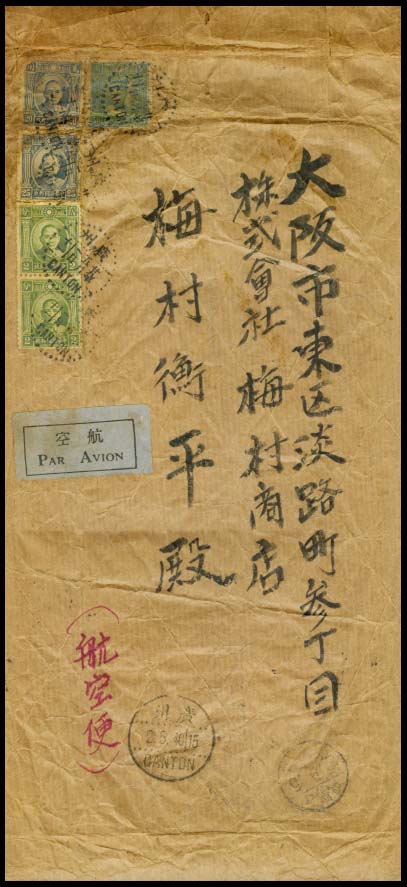 大阪市東区淡路町参丁目
株式會社梅村商店
梅村衡平殿
空航
PAR AVION
(航空便)
州廣
CANTON
CANTON
CANTON
25
2
2